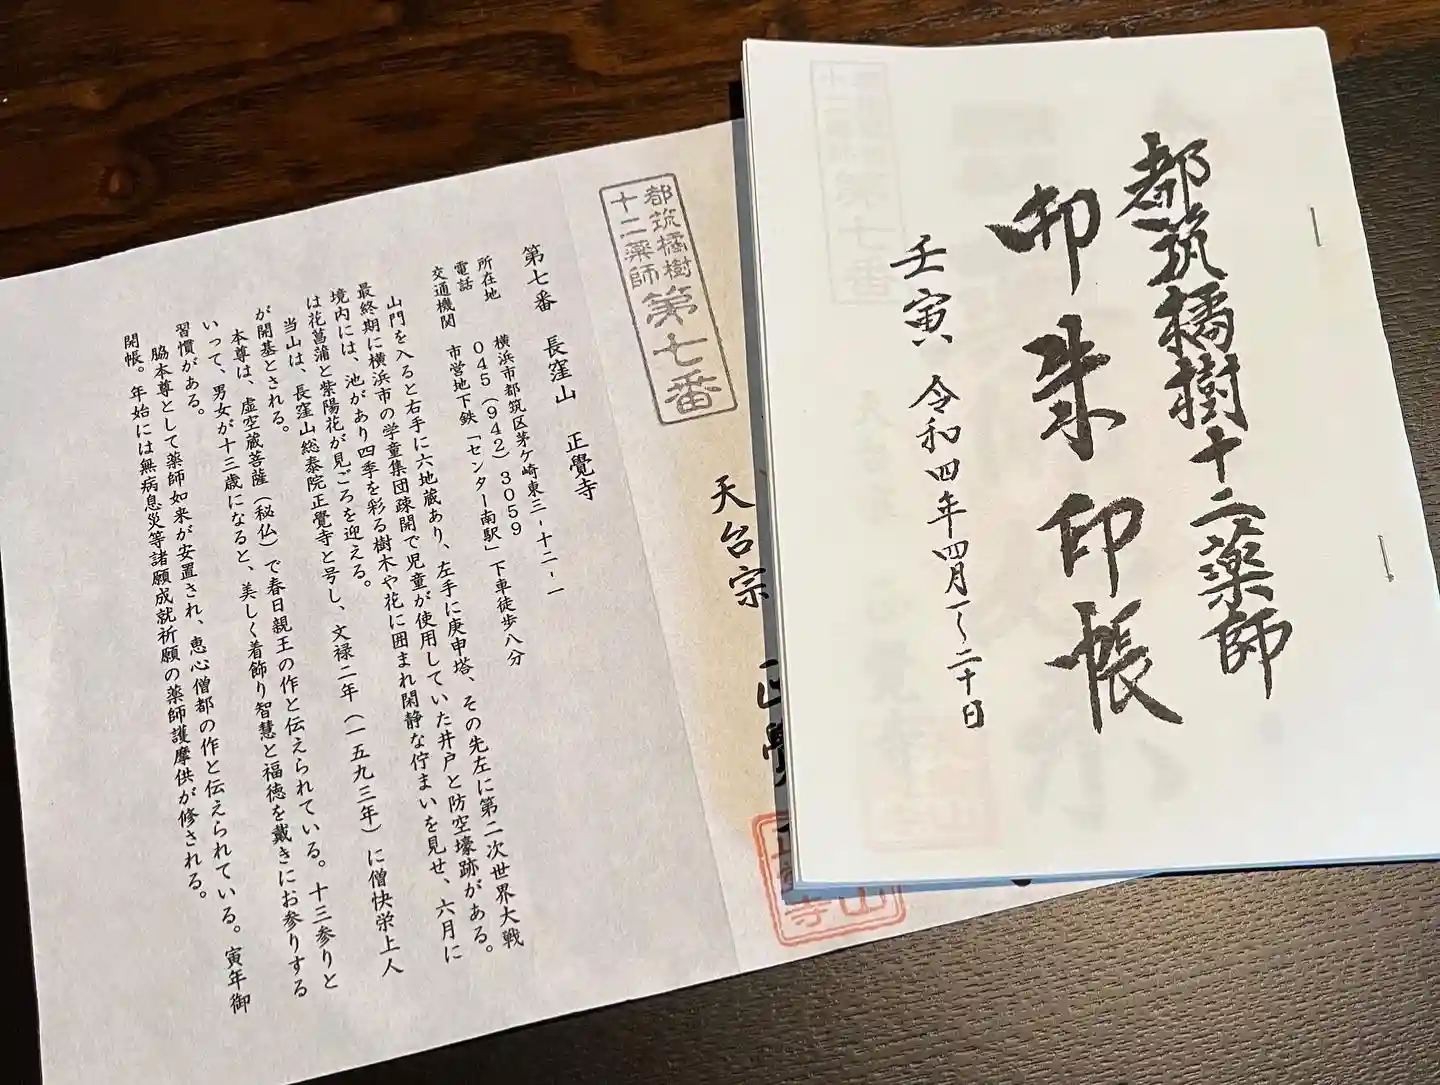 都筑橘樹十二薬師
御朱印帳
壬寅 令和四年四月一〜二十日
都筑橘樹
十二薬師
第七番
天台宗
正覺
第七番 長窪山 正覺寺
所在地 横浜市都筑区茅ケ崎東三-十二-一
電話 045(942)3059
交通機関 市営地下鉄「センター南駅」下車徒歩八分
山門を入ると右手に六地蔵あり、左手に庚申塔、その先左に第二次世界大戦
最終期に横浜市の学童集団疎開で児童が使用していた井戸と防空壕跡がある。
境内には、池があり四季を彩る樹木や花に囲まれ閑静な佇まいを見せ、六月に
は花菖蒲と紫陽花が見ごろを迎える。
当山は、長窪山総泰院正覺寺と号し、文禄二年(一五九三年)に僧快栄上人
が開基とされる。
本尊は、虚空蔵菩薩(秘仏)で春日親王の作と伝えられている。十三参りと
いって、男女が十三歳になると、美しく着飾り智慧と福徳を戴きにお参りする
習慣がある。
脇本尊として薬師如来が安置され、恵心僧都の作と伝えられている。寅年御
開帳。年始には無病息災等諸願成就祈願の薬師護摩供が修される。